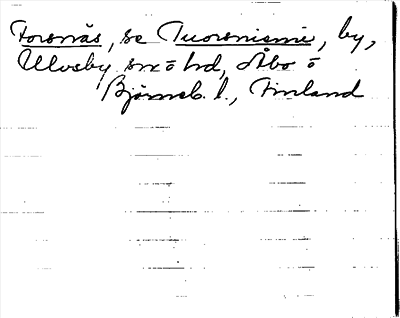 Forsnäs, se Tuorsniemi, by,
Ulvsby sn ō hd, Åbo ō
Björneb. l., Finland